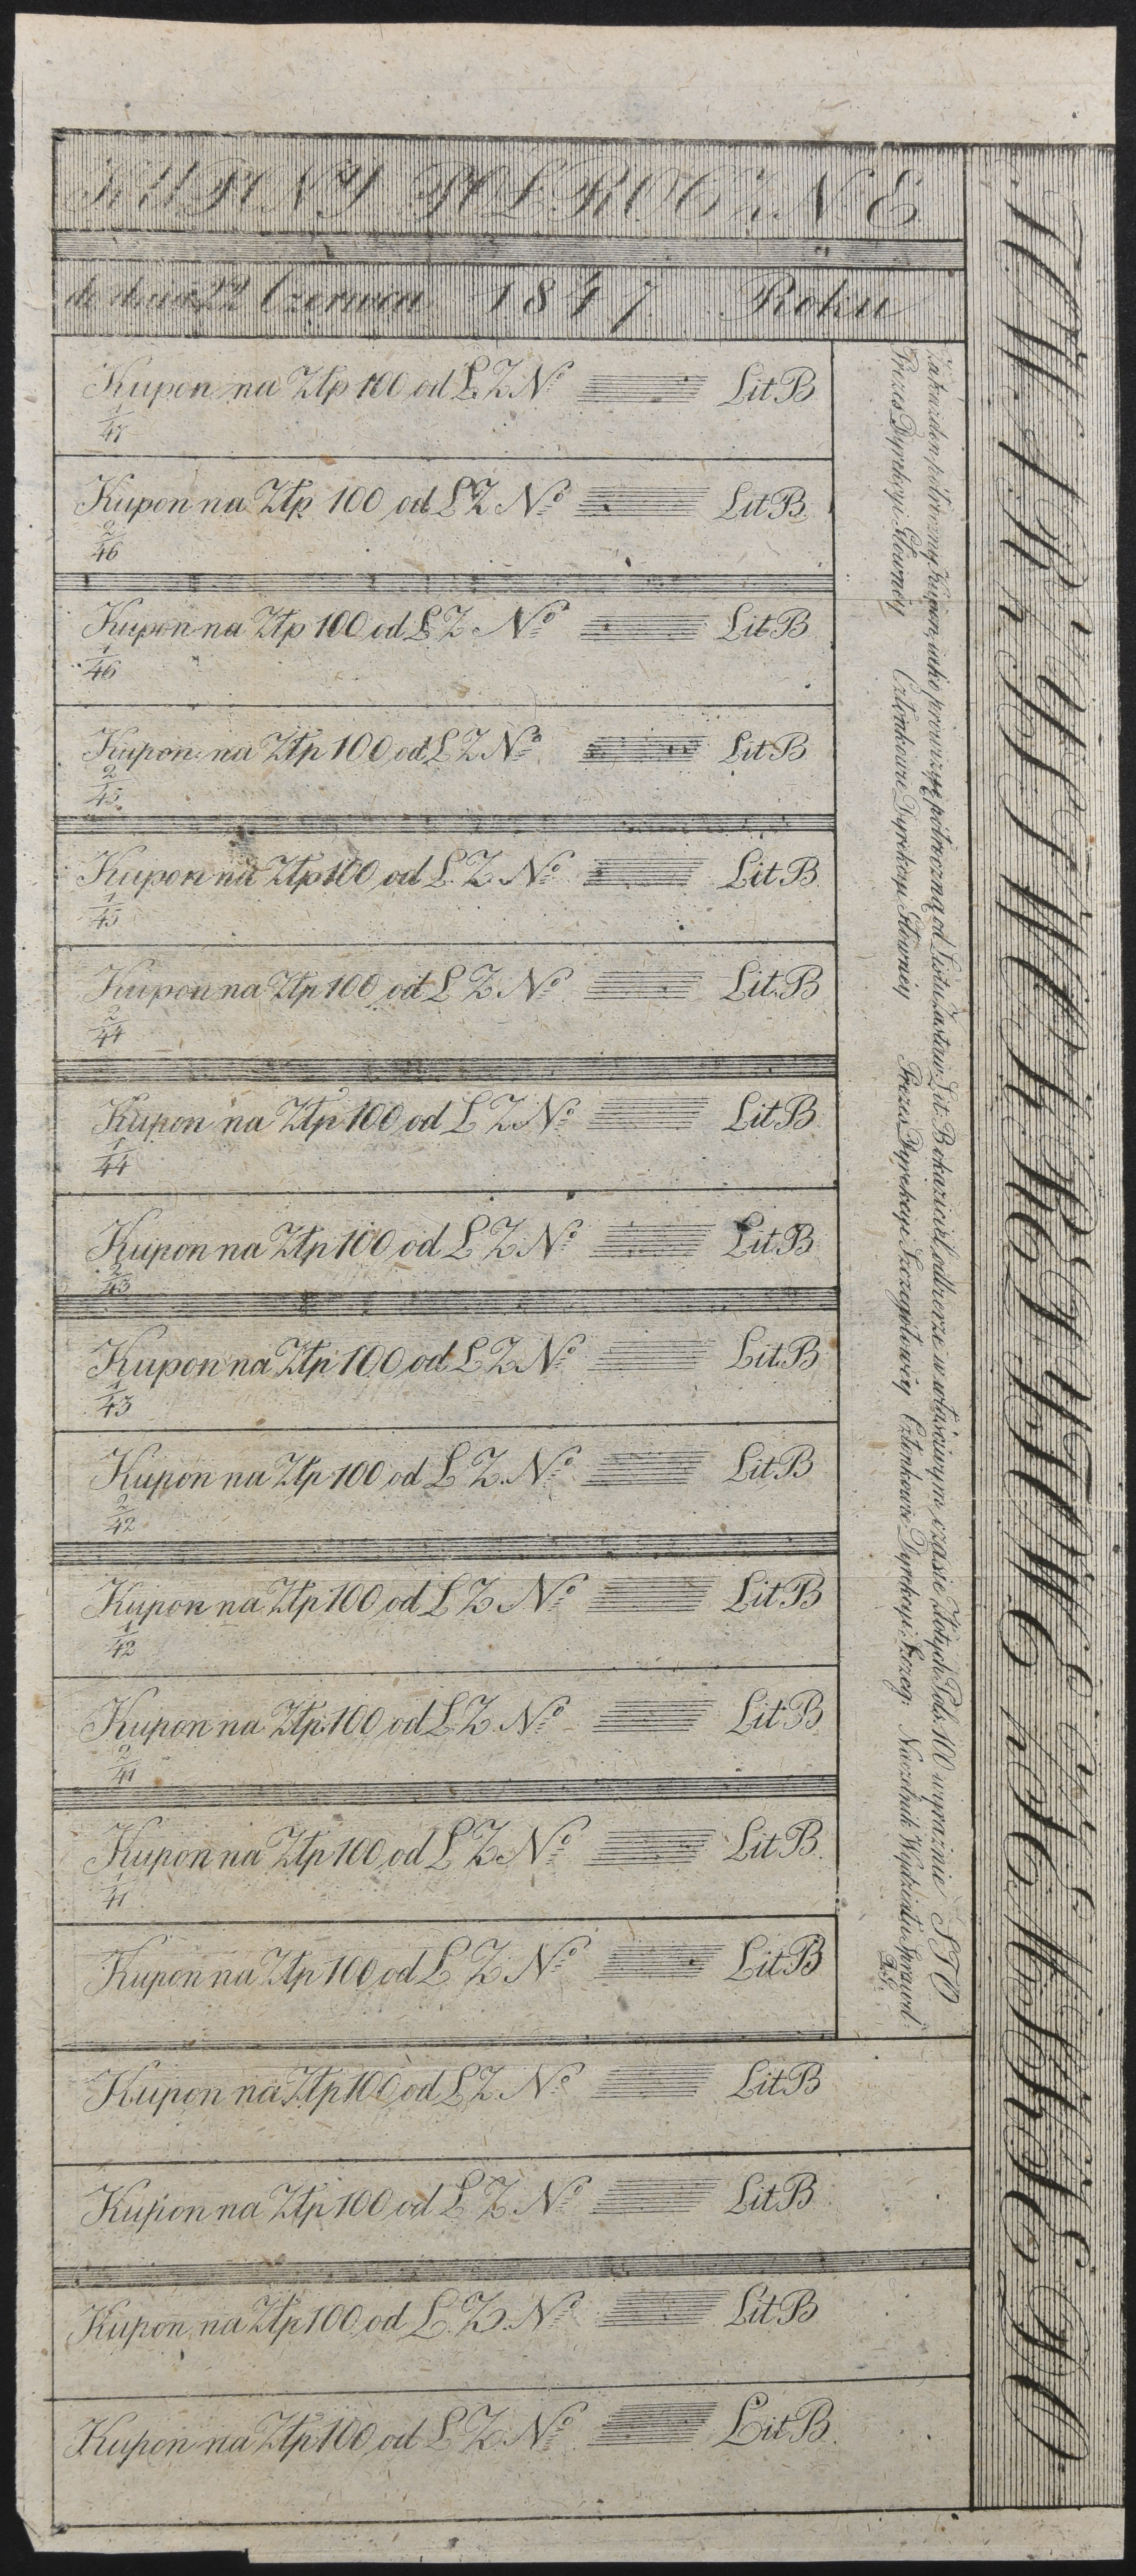 KUPONY PÓŁROCZNE
do dnia 22 Czerwca 1847 Roku
Kupon na Złp 100 od L Z Nº Lit B
1/47
Kupon na Złp 100 od L Z Nº Lit B
2/46
Kupon na Złp 100 od L Z Nº Lit B
1/46
Kupon na Złp 100 od L Z Nº Lit B
2/45
Kupon na Złp 100 od L Z Nº Lit B
1/45
Kupon na Złp 100 od L Z Nº Lit B
2/44
Kupon na Złp 100 od L Z Nº Lit B
1/44
Kupon na Złp 100 od L Z Nº Lit B
2/43
Kupon na Złp 100 od L Z Nº Lit B
1/43
Kupon na Złp 100 od L Z Nº Lit B
2/42
Kupon na Złp 100 od L Z Nº Lit B
1/42
Kupon na Złp 100 od L Z Nº Lit B
2/41
Kupon na Złp 100 od L Z Nº Lit B
1/41
Kupon na Złp 100 od L Z Nº Lit B
Kupon na Złp 100 od L Z Nº Lit B
Kupon na Złp 100 od L Z Nº Lit B
Kupon na Złp 100 od L Z Nº Lit B
Kupon na Złp 100 od L Z Nº Lit B
Za każden półroczny Kupon, iako prowizyę półroczną od Listu Zastaw: Lit: B okaziciel odbierze w właściwym czasie Złotych Pols: 100 wyraźnie STO
Prezes Dyrekcyi Głownéy Członkowie Dyrekcyi Głownéy Prezes Dyrekcyi Szczegółowéy Członkowie Dyrekcyi Szczeg: Naczelnik Wydziału Sprawd:
D. G.
TOWARZYSTWO KREDYTOWE ZIEMSKIE